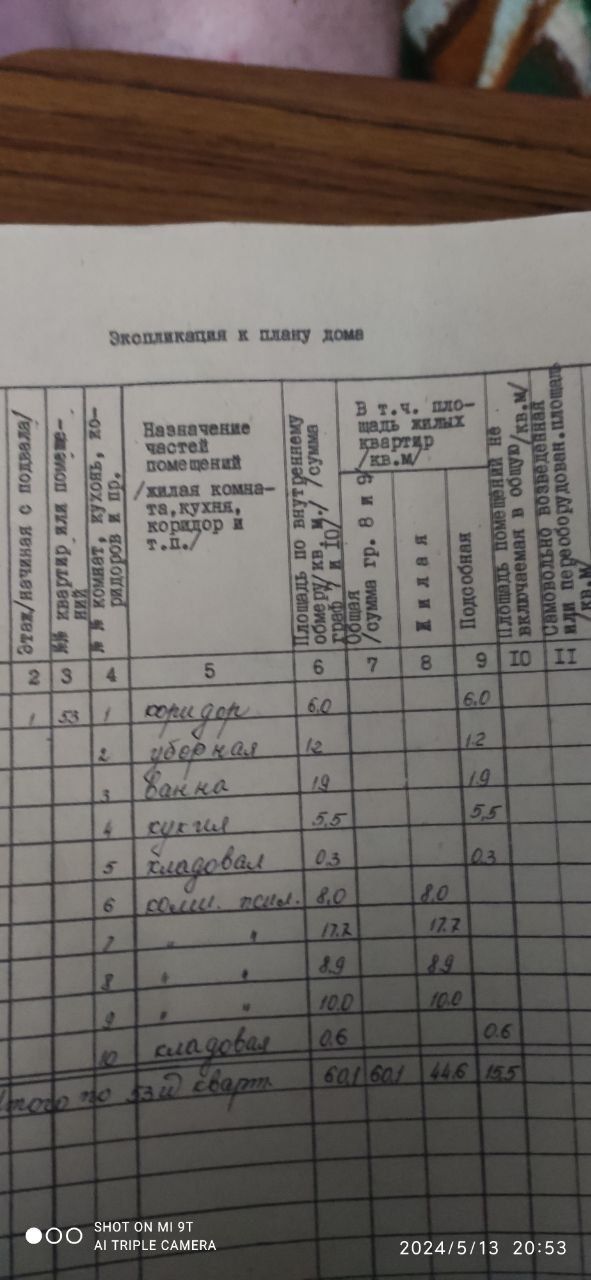 Экспликация к плану дома
Этаж/начиная с подвала/
№№ квартир или помеще-
ний
№ № комнат, кухонь, ко-
ридоров и пр.
Назначение
частей
помещений
/жилая комна-
та, кухня,
коридор и
т.п./
Площадь по внутреннему
обмеру/кв.м./ /сумма
граф 7 и 10/
В т.ч. пло-
щадь жилых
квартир
/кв.м/
Общая
/сумма гр. 8 и 9
Жилая
Подсобная
Площадь помещений не
включаемая в общую/кв.м/
Самовольно возведенная
или переоборудован.площадь
/кв.м/
2 3 4 5 6 7 8 9 10 11
1 53 1 коридор 6,0 6,0
2 уборная 1,2 1,2
3 ванна 1,9 1,9
4 кухня 5,5 5,5
5 кладовая 0,3 0,3
6 8,0 8,0
7 " " 17,7 17,7
8 " " 8,9 8,9
9 " " 10,0 10,0
10 кладовая 0,6 0,6
Итого по 53й кварт. 60,1 60,1 44,6 15,5
SHOT ON MI 9T
AI TRIPLE CAMERA
2024/5/13 20:53